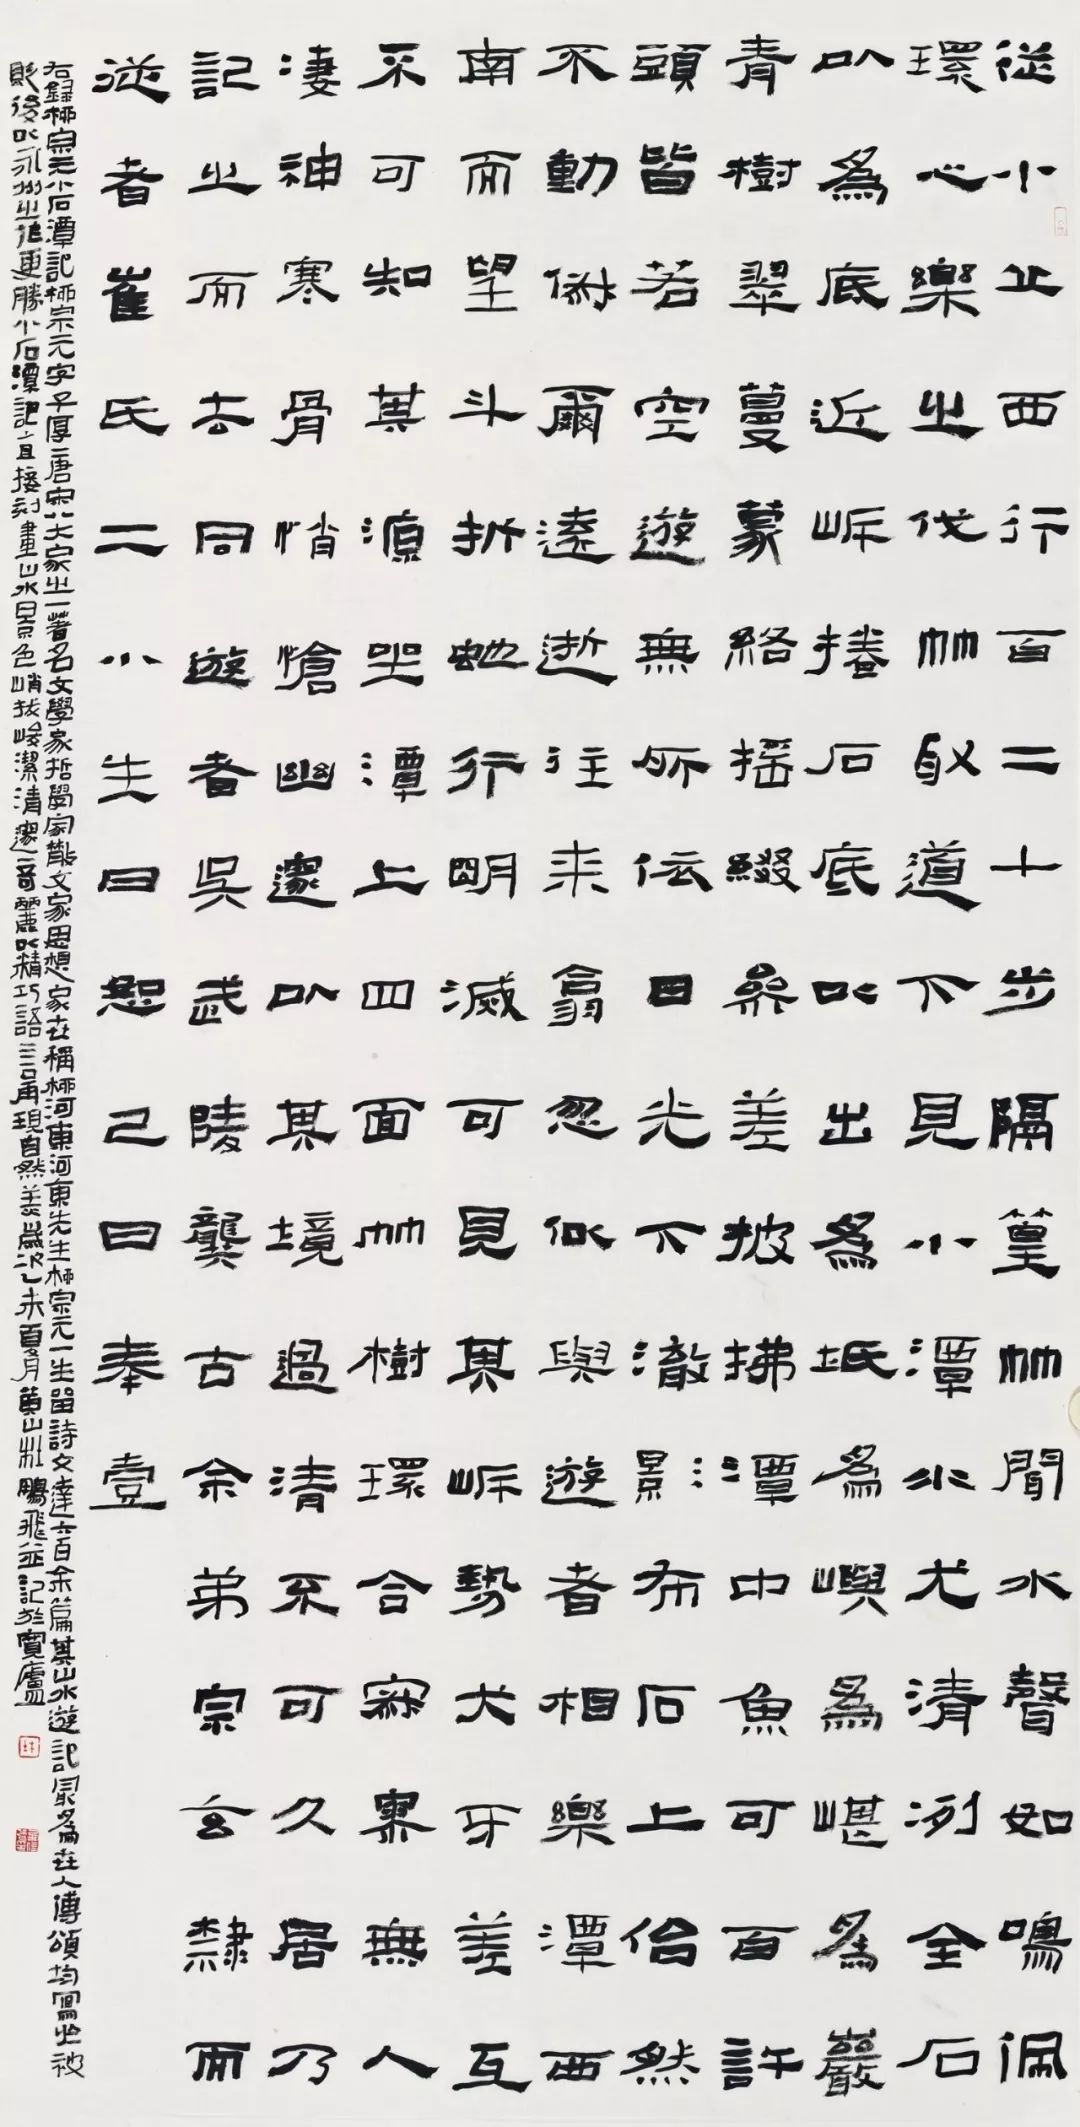 從小丘西行百二十步隔篁竹聞水聲如鳴佩
環心樂之伐竹取道下見小潭水尤清洌全石
以為底近岸捲石底以出為坻為嶼為嵁為巖
青樹翠蔓蒙絡搖綴參差披拂潭中魚可百許
頭皆若空遊無所依日光下澈影布石上佁然
不動俶爾遠逝往來翕忽似與遊者相樂潭西
南而望斗折蛇行明滅可見其岸勢犬牙差互
不可知其源坐潭上四面竹樹環合寂寥無人
淒神寒骨悄愴幽邃以其境過清不可久居乃
記之而去同遊者吳武陵龔古余弟宗玄隸而
從者崔氏二小生曰恕己曰奉壹
右錄柳宗元小石潭記柳宗元字子厚唐宋八大家之一著名文學家哲學家散文家思想家世稱柳河東河東先生柳宗元一生留詩文達六百余篇其山水遊記最為世人傳頌均寫於被
貶後以永州之作更勝小石潭記直接刻畫山水景色峭拔峻潔清邃奇麗以精巧語言再現自然美歲次乙未夏月黃山杜鵬飛並記於寶廬